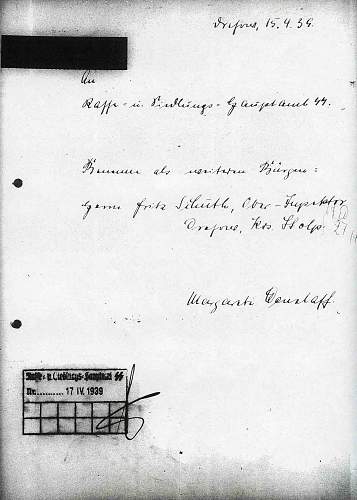 15.4.39.
An
Rasse- u. Siedlungs-Hauptamt SS.
Benenne als weiteren Bürgen:
Herrn Fritz Schuth, Ober-Inspektor
Krs. Stolp.
Margarete
Rasse- u. Siedlungs-Hauptamt SS
Nr.......... 17 IV. 1939